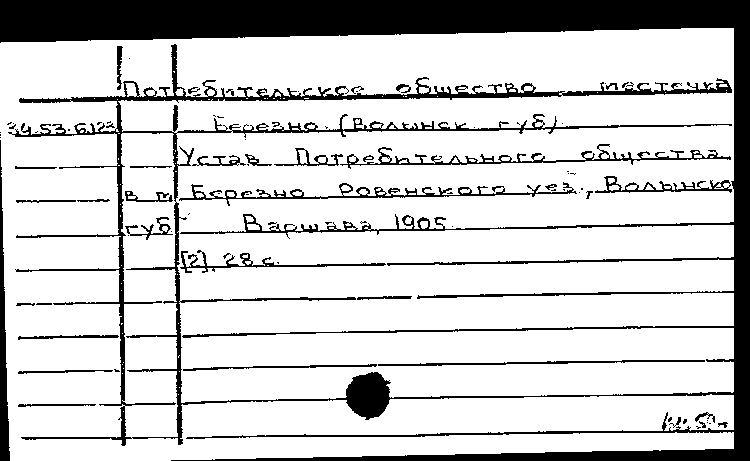 Потребительское общество местечка
34.53.6123 Березно (Волынск губ)
Устав Потребительного общества
в м. Березно Ровенского уез., Волынско
губ Варшава, 1905
[2], 28 с.